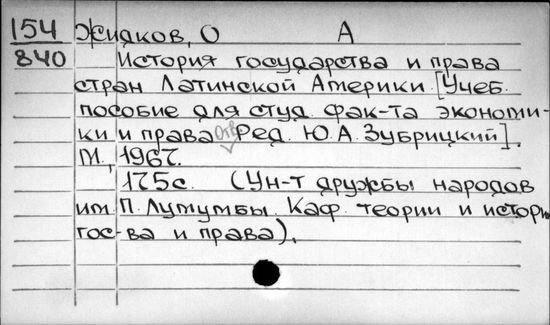 154 Жидков, О А
840 История государства и права
стран Латинской Америки. [Учеб.
пособие для студ. фак-та экономи-
ки и права Отв. Ред. Ю.А. Зубрицкий].
М., 1967.
175с. (Ун-т дружбы народов
им. П. Лумумбы. Каф. теории и истории
гос-ва и права).